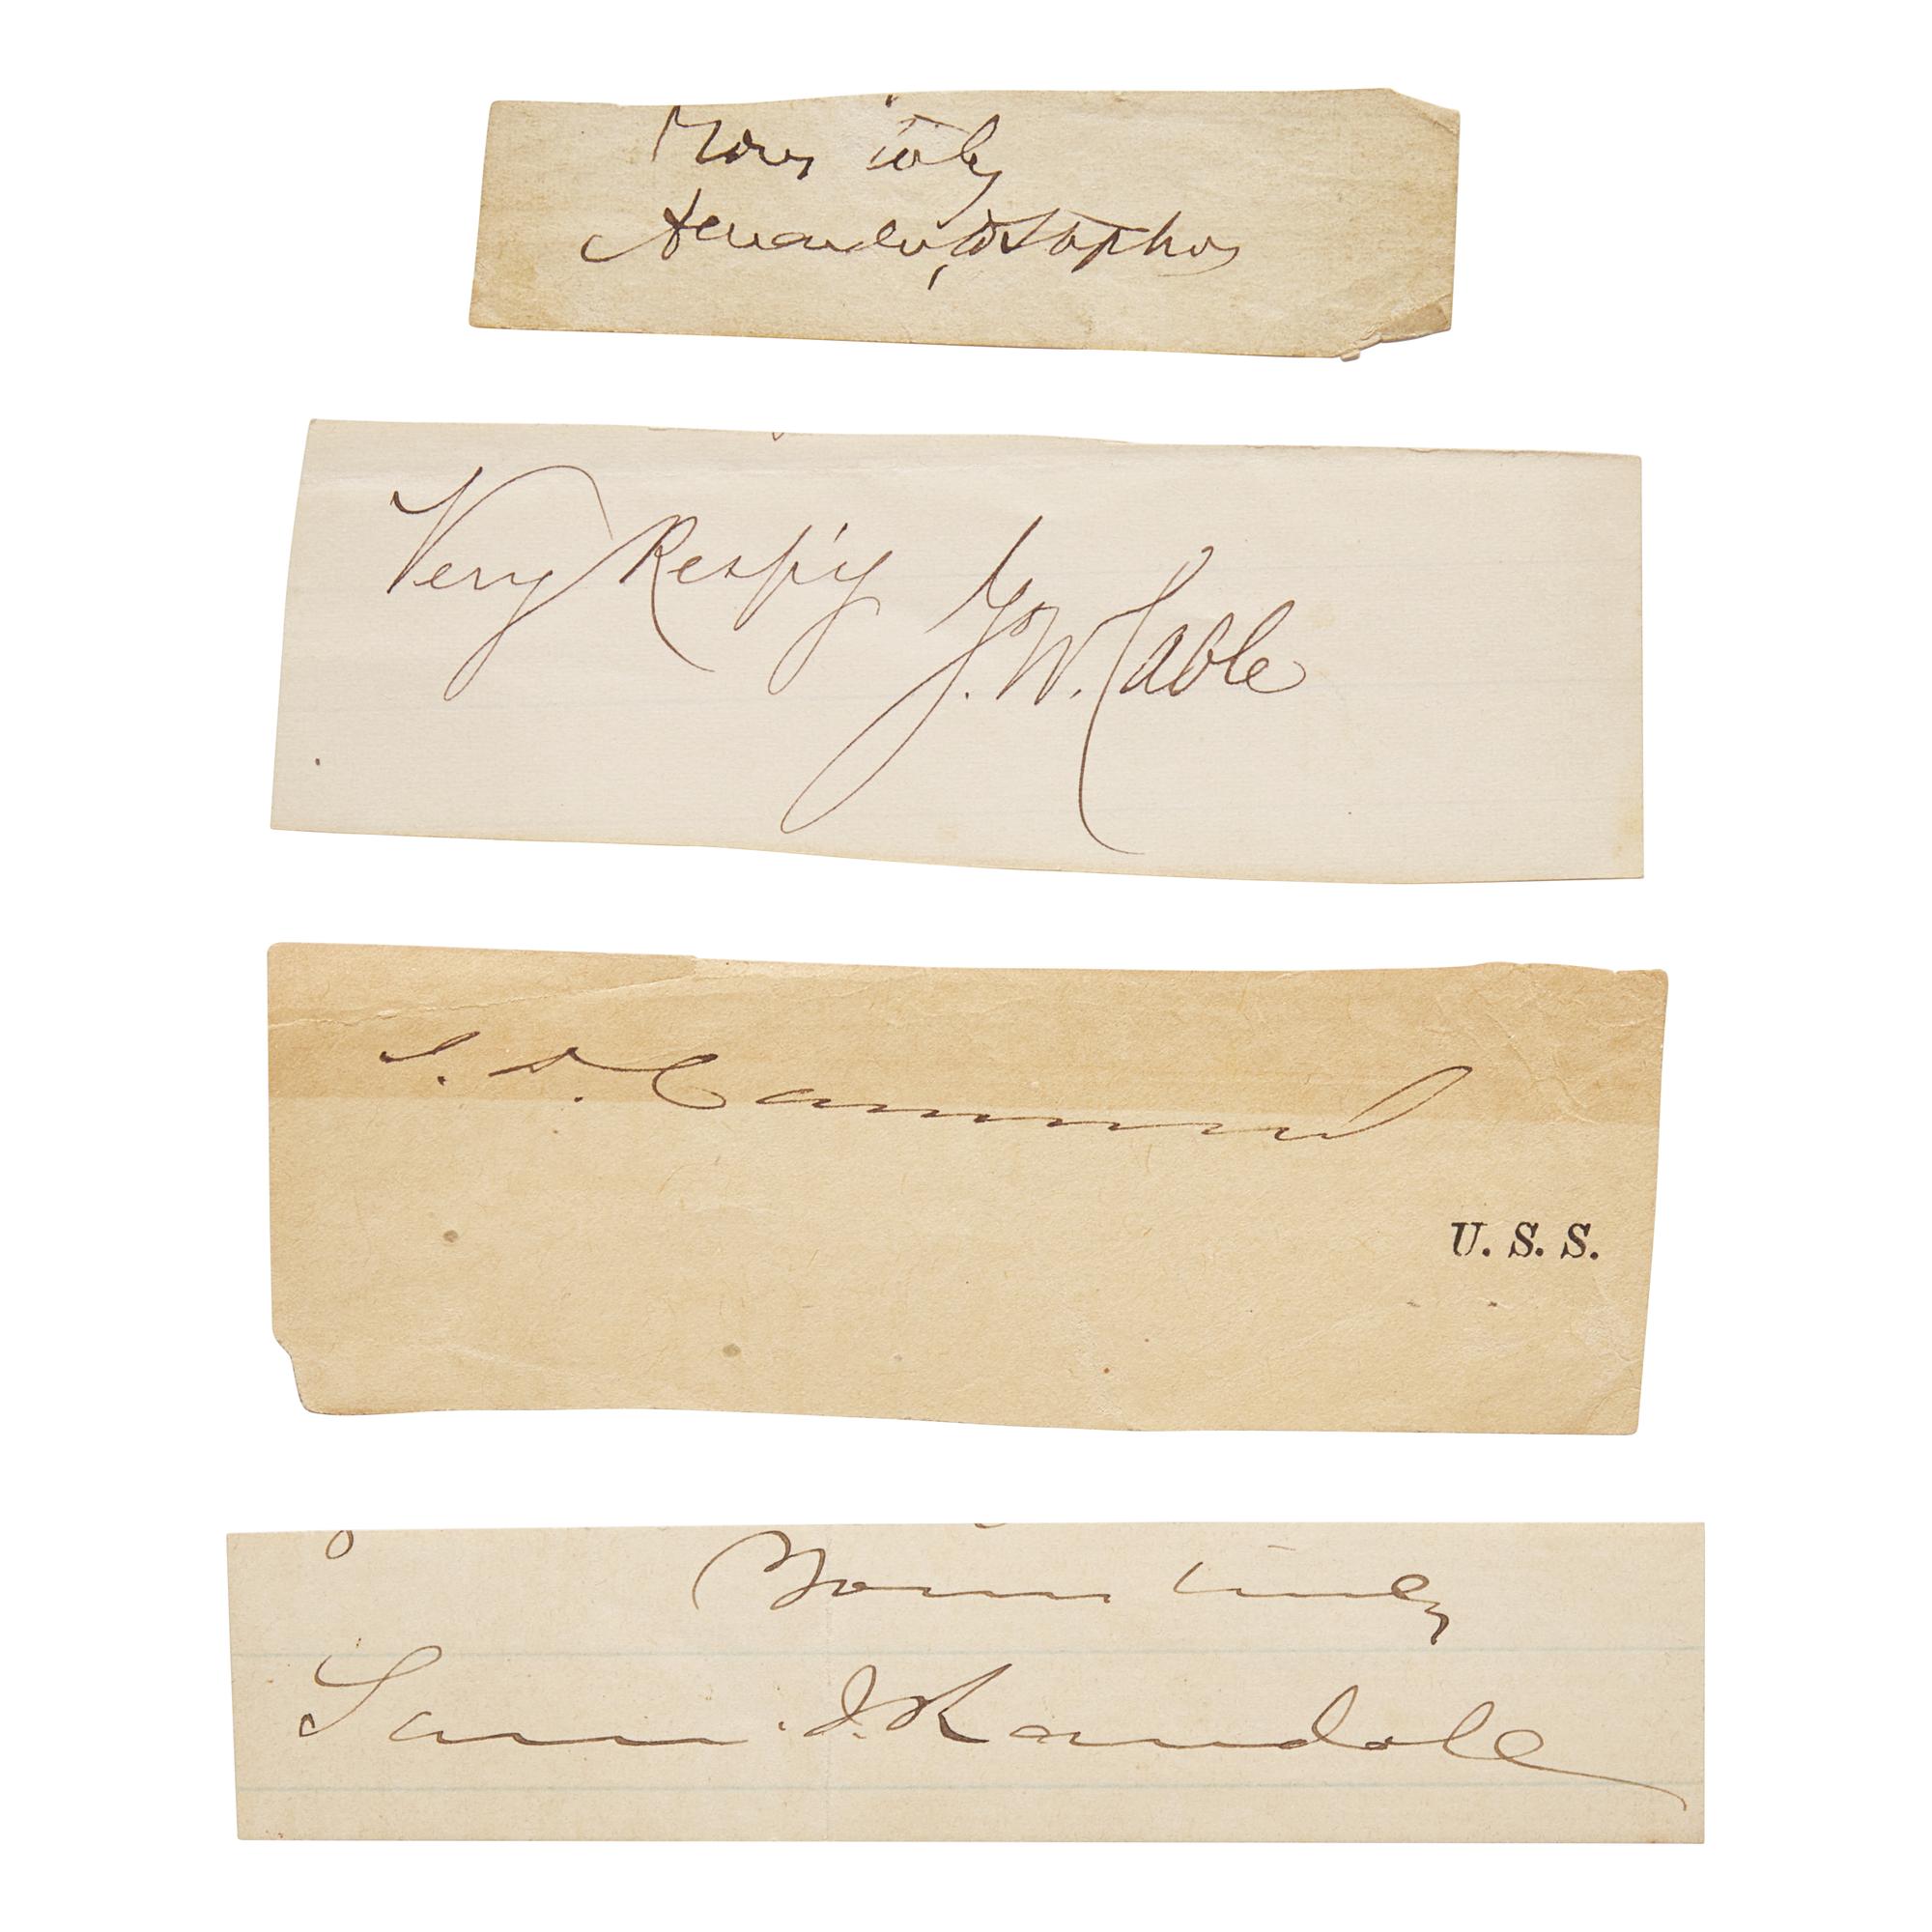 Yours truly
Alexander H Stephens
Very Resp'y G. W. Cable
U. S. S.
Yours truly
Sam. J. Randall